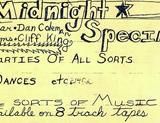 Midnight
Special
ar · Dan Coken
ms: Cliff King
ARTIES OF ALL SORTS
DANCES etc
E SORTS OF MUSIC
ailable on 8 Track tapes